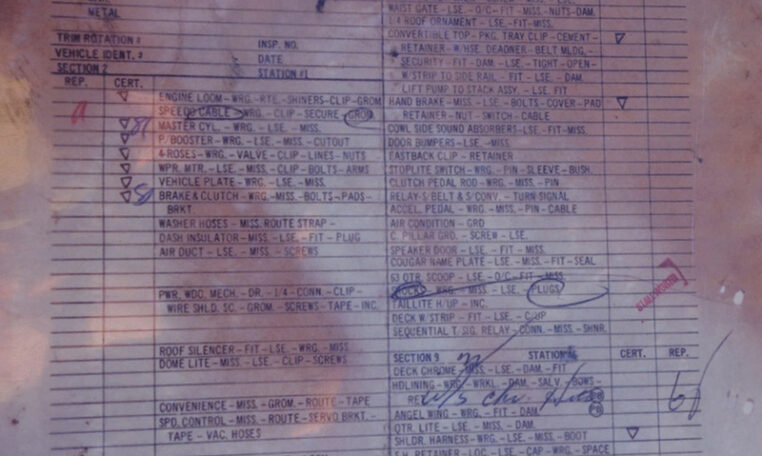 METAL
TRIM ROTATION #
INSP. NO.
VEHICLE IDENT. #
DATE
SECTION 2
STATION #1
REP. CERT.
ENGINE LOOM-WRG.-RTE.-SHINERS-CLIP-GROM
SPEEDO CABLE-WRG.-CLIP-SECURE-GROM
MASTER CYL.-WRG.-LSE.-MISS.
P. BOOSTER-WRG.-LSE.-MISS.-CUTOUT
4-ROSES-WRG.-VALVE-CLIP-LINES-NUTS
WPR. MTR.-LSE.-MISS.-CLIP-BOLTS-ARMS
VEHICLE PLATE-WRG.-LSE.-MISS.
BRAKE & CLUTCH-WRG.-MISS.-BOLTS-PADS-
BRKT.
WASHER HOSES-MISS. ROUTE STRAP-
DASH INSULATOR-MISS.-LSE.-FIT-PLUG
AIR DUCT-LSE.-MISS.-SCREWS
PWR. WDO. MECH.-DR.-1/4-CONN.-CLIP-
WIRE SHLD. SC.-GROM.-SCREWS-TAPE-INC.
ROOF SILENCER-FIT-LSE.-WRG.-MISS
DOME LITE-MISS.-LSE.-CLIP-SCREWS
CONVENIENCE-MISS.-GROM.-ROUTE-TAPE
SPD. CONTROL-MISS.-ROUTE-SERVO BRKT.-
TAPE-VAC. HOSES
WAIST GATE-LSE.-O/C-FIT-MISS.-NUTS-DAM.
1/4 ROOF ORNAMENT-LSE.-FIT-MISS.
CONVERTIBLE TOP-PKG. TRAY CLIP-CEMENT-
RETAINER-W/HSE. DEADNER-BELT MLDG.-
SECURITY-FIT-DAM.-LSE.-TIGHT-OPEN-
W/STRIP TO SIDE RAIL-FIT-LSE.-DAM.
LIFT PUMP TO STACK ASSY.-LSE. FIT
HAND BRAKE-MISS.-LSE.-BOLTS-COVER-PAD
RETAINER-NUT-SWITCH-CABLE
COWL SIDE SOUND ABSORBERS-LSE.-FIT-MISS.
DOOR BUMPERS-LSE.-MISS.
FASTBACK CLIP-RETAINER
STOPLITE SWITCH-WRG.-PIN-SLEEVE-BUSH.
CLUTCH PEDAL ROD-WRG.-MISS.-PIN
RELAY-S/BELT & S/CONV.-TURN SIGNAL
ACCEL. PEDAL-WRG.-MISS.-PIN-CABLE
AIR CONDITION-GRD
C. PILLAR GRD.-SCREW-LSE.
SPEAKER DOOR-LSE.-FIT-MISS.
COUGAR NAME PLATE-LSE.-MISS.-FIT-SEAL
63 QTR. SCOOP-LSE.-O/C-FIT-MISS
LOCKS-WRG.-MISS.-LSE.-PLUGS
TAILLITE H/UP-INC.
DECK W/STRIP-FIT-LSE.-C/UP
SEQUENTIAL T/SIG. RELAY-CONN.-MISS.-SHNR.
SECTION 9
STATION
CERT. REP.
DECK CHROME-MISS.-LSE.-DAM.-FIT
HDLINING-WRG.-WRKL.-DAM.-SALV. BOWS-
W/S Chr.
ANGEL WING-WRG.-FIT-DAM.
QTR. LITE-LSE.-MISS.-DAM.
SHLDR. HARNESS-WRG.-LSE.-MISS.-BOOT
S.H. RETAINER-LOC.-LSE.-CAP-WRG.-SPACE